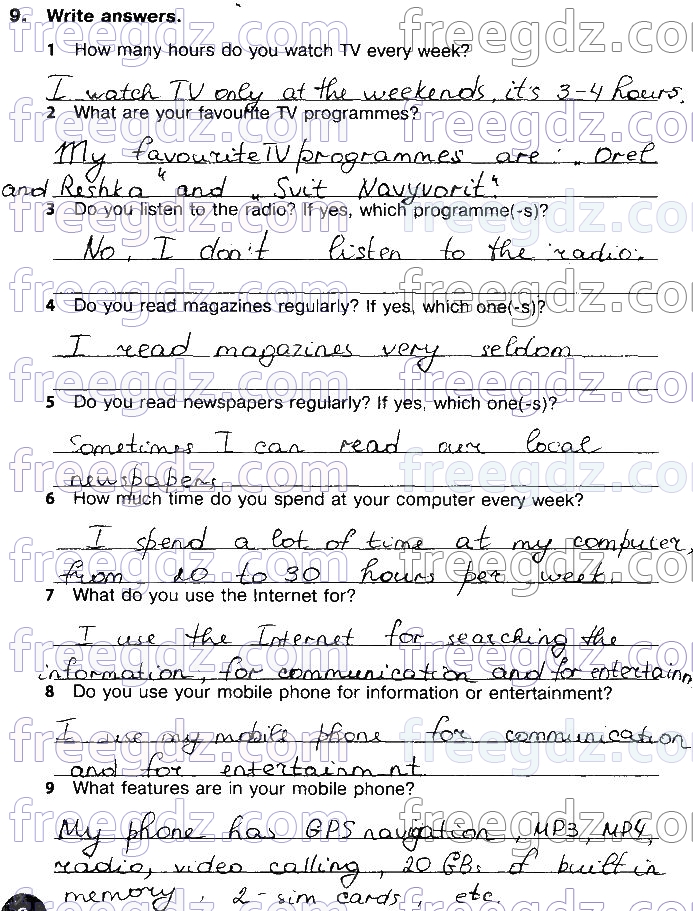 9. Write answers.
1 How many hours do you watch TV every week?
I watch TV only at the weekends, it's 3-4 hours.
2 What are your favourite TV programmes?
My favourite TV programmes are „Orel
and Reshka“ and „Svit Navyvorit“.
3 Do you listen to the radio? If yes, which programme(-s)?
No, I don't listen to the radio.
4 Do you read magazines regularly? If yes, which one(-s)?
I read magazines very seldom
5 Do you read newspapers regularly? If yes, which one(-s)?
Sometimes I can read our local
newspapers
6 How much time do you spend at your computer every week?
I spend a lot of time at my computer,
from 20 to 30 hours per week.
7 What do you use the Internet for?
I use the Internet for searching the
information, for communication and for entertainm
8 Do you use your mobile phone for information or entertainment?
I use my mobile phone for communication
and for entertainm nt
9 What features are in your mobile phone?
My phone has GPS navigation, MP3, MP4,
radio, video calling, 20 GBs of built in
memory, 2-sim cards, etc.
freegdz.com